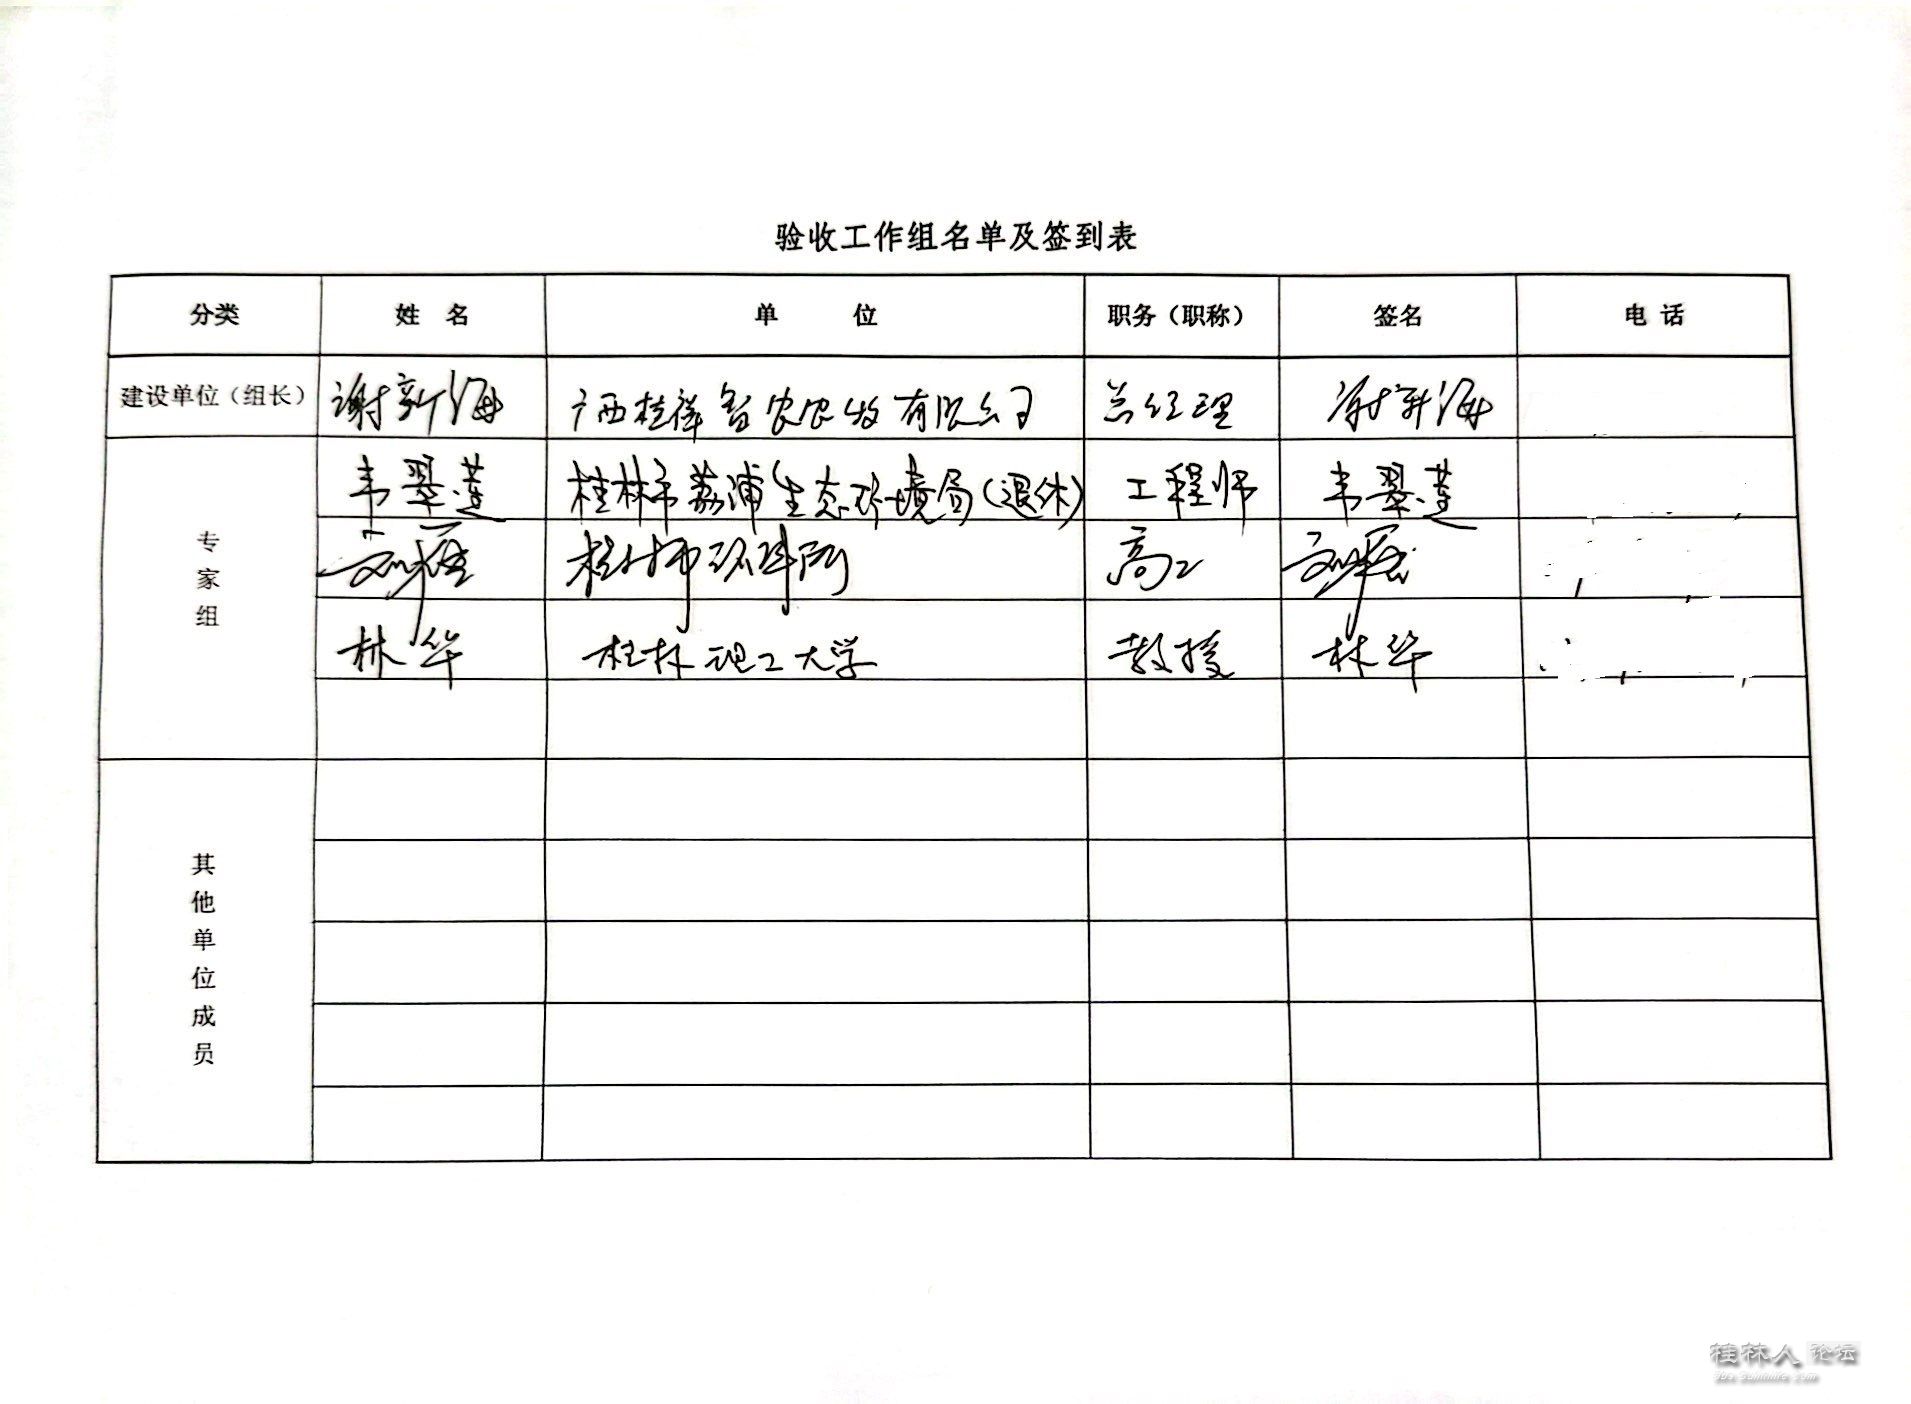 验收工作组名单及签到表
分类 姓 名 单 位 职务（职称） 签名 电 话
建设单位（组长） 谢新海 广西桂祥智农农牧有限公司 总经理 谢新海
专家组
韦翠莲 桂林市荔浦生态环境局（退休） 工程师 韦翠莲
桂林市环科所 高工
林华 桂林理工大学 教授 林华
其他单位成员
桂林人论坛